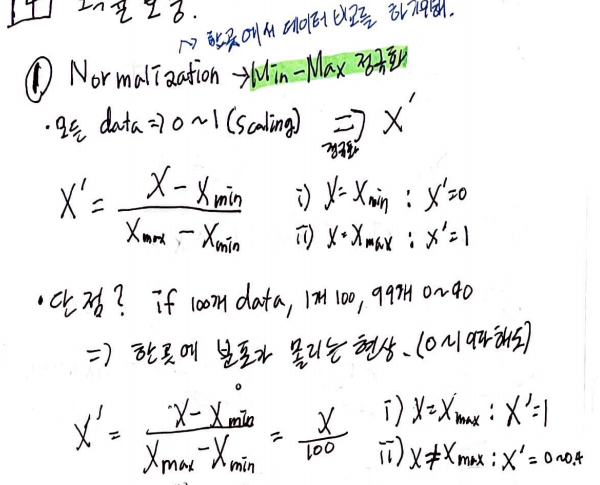 → 한곳에서 데이터 비교를 하기위해.
① Normalization → Min-Max 정규화
· 모든 data ⇒ 0 ~ 1 (scaling) ⇒ X'
정규화
X' = (X - Xmin) / (Xmax - Xmin) i) X = Xmin : X' = 0
ii) X = Xmax : X' = 1
· 단점? if 100개 data, 1개 100, 99개 0~40
⇒ 한곳에 분포가 몰리는 현상. (0~1 해도)
X' = (X - Xmin) / (Xmax - Xmin) = X / 100 i) X = Xmax : X' = 1
0
ii) X ≠ Xmax : X' = 0~0.4